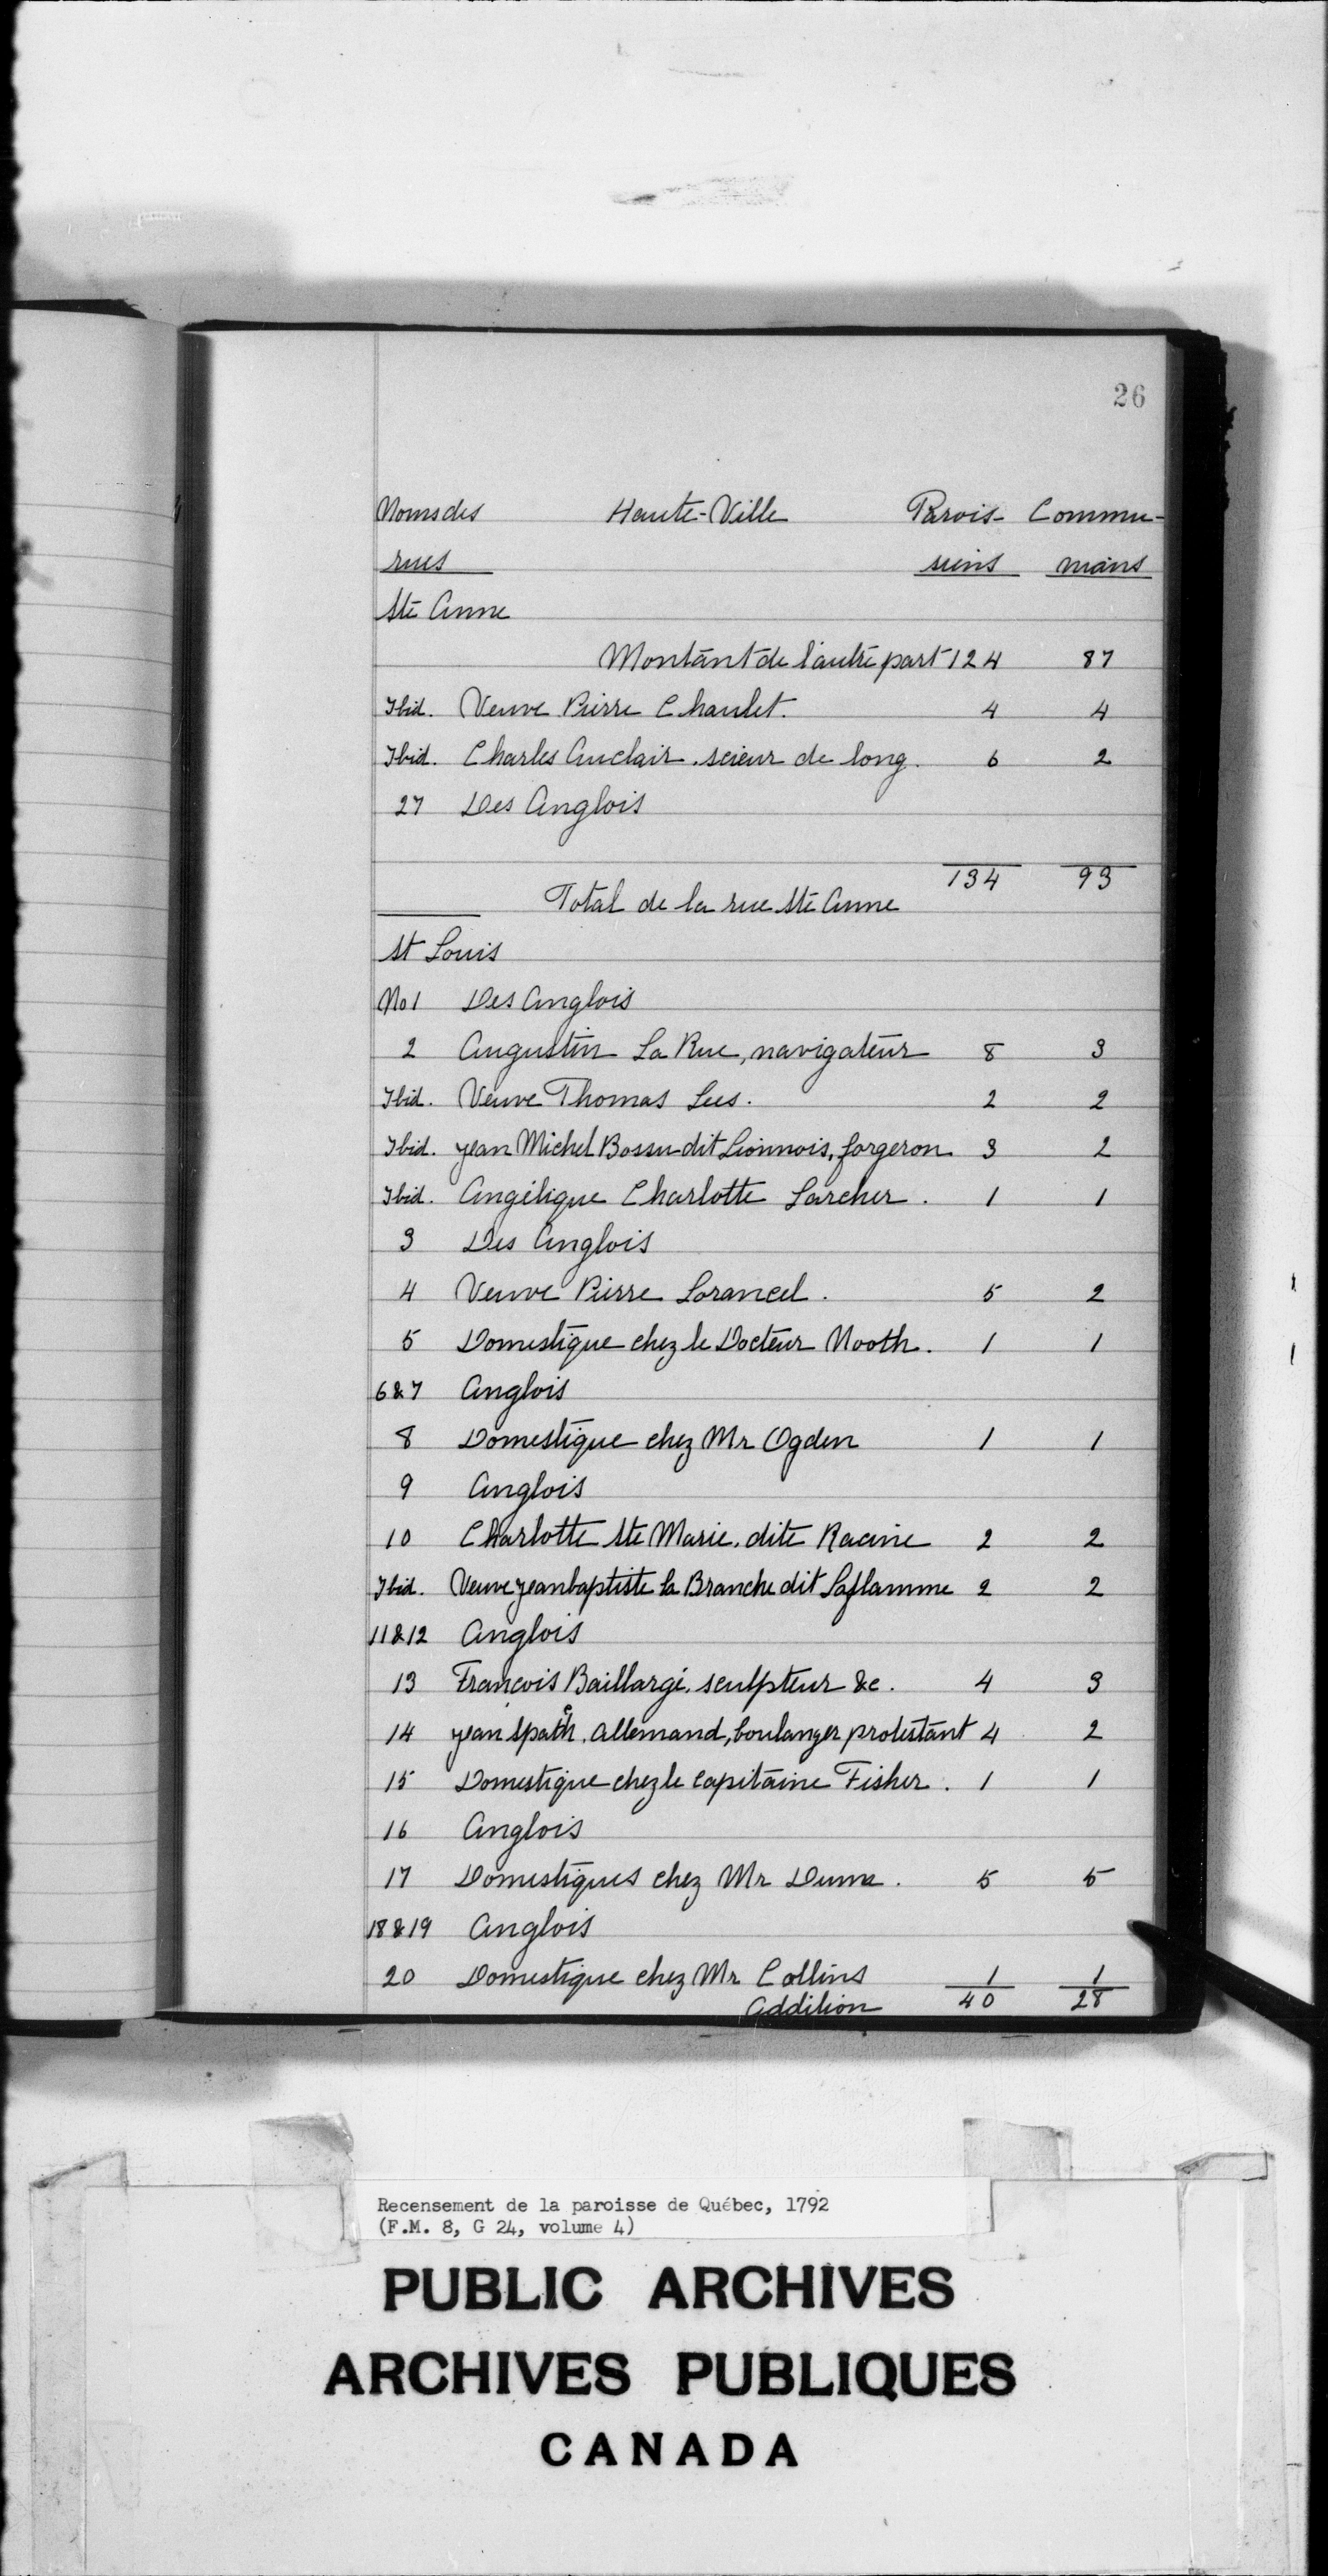 26
Noms des Haute-Ville Parois- Commu-
rues siens nians
Ste Anne
Montant de l'autre part 124 87
Ibid. Veuve Pierre Chaulet. 4 4
Ibid. Charles Auclair, scieur de long. 6 2
27 Des Anglois
134 93
Total de la rue Ste Anne
St Louis
No 1 Des Anglois
2 Augustin La Rue, navigateur 8 3
Ibid. Veuve Thomas Lee. 2 2
Ibid. Jean Michel Bossu dit Lionnois, forgeron 3 2
Ibid. Angélique Charlotte Larcher. 1 1
3 Des Anglois
4 Veuve Pierre Lorancel. 5 2
5 Domestique chez le Docteur Nooth. 1 1
6 & 7 Anglois
8 Domestique chez Mr Ogden 1 1
9 Anglois
10 Charlotte Ste Marie, dite Racine 2 2
Ibid. Veuve Jean baptiste la Branche dit Laflamme 2 2
11 & 12 Anglois
13 François Baillargé, sculpteur &c. 4 3
14 Jean Spath, Allemand, boulanger protestant 4 2
15 Domestique chez le Capitaine Fisher. 1 1
16 Anglois
17 Domestiques chez Mr Dunn. 5 5
18 & 19 Anglois
20 Domestique chez Mr Collins 1 1
Addition 40 28
Recensement de la paroisse de Québec, 1792
(F.M. 8, G 24, volume 4)
PUBLIC ARCHIVES
ARCHIVES PUBLIQUES
CANADA